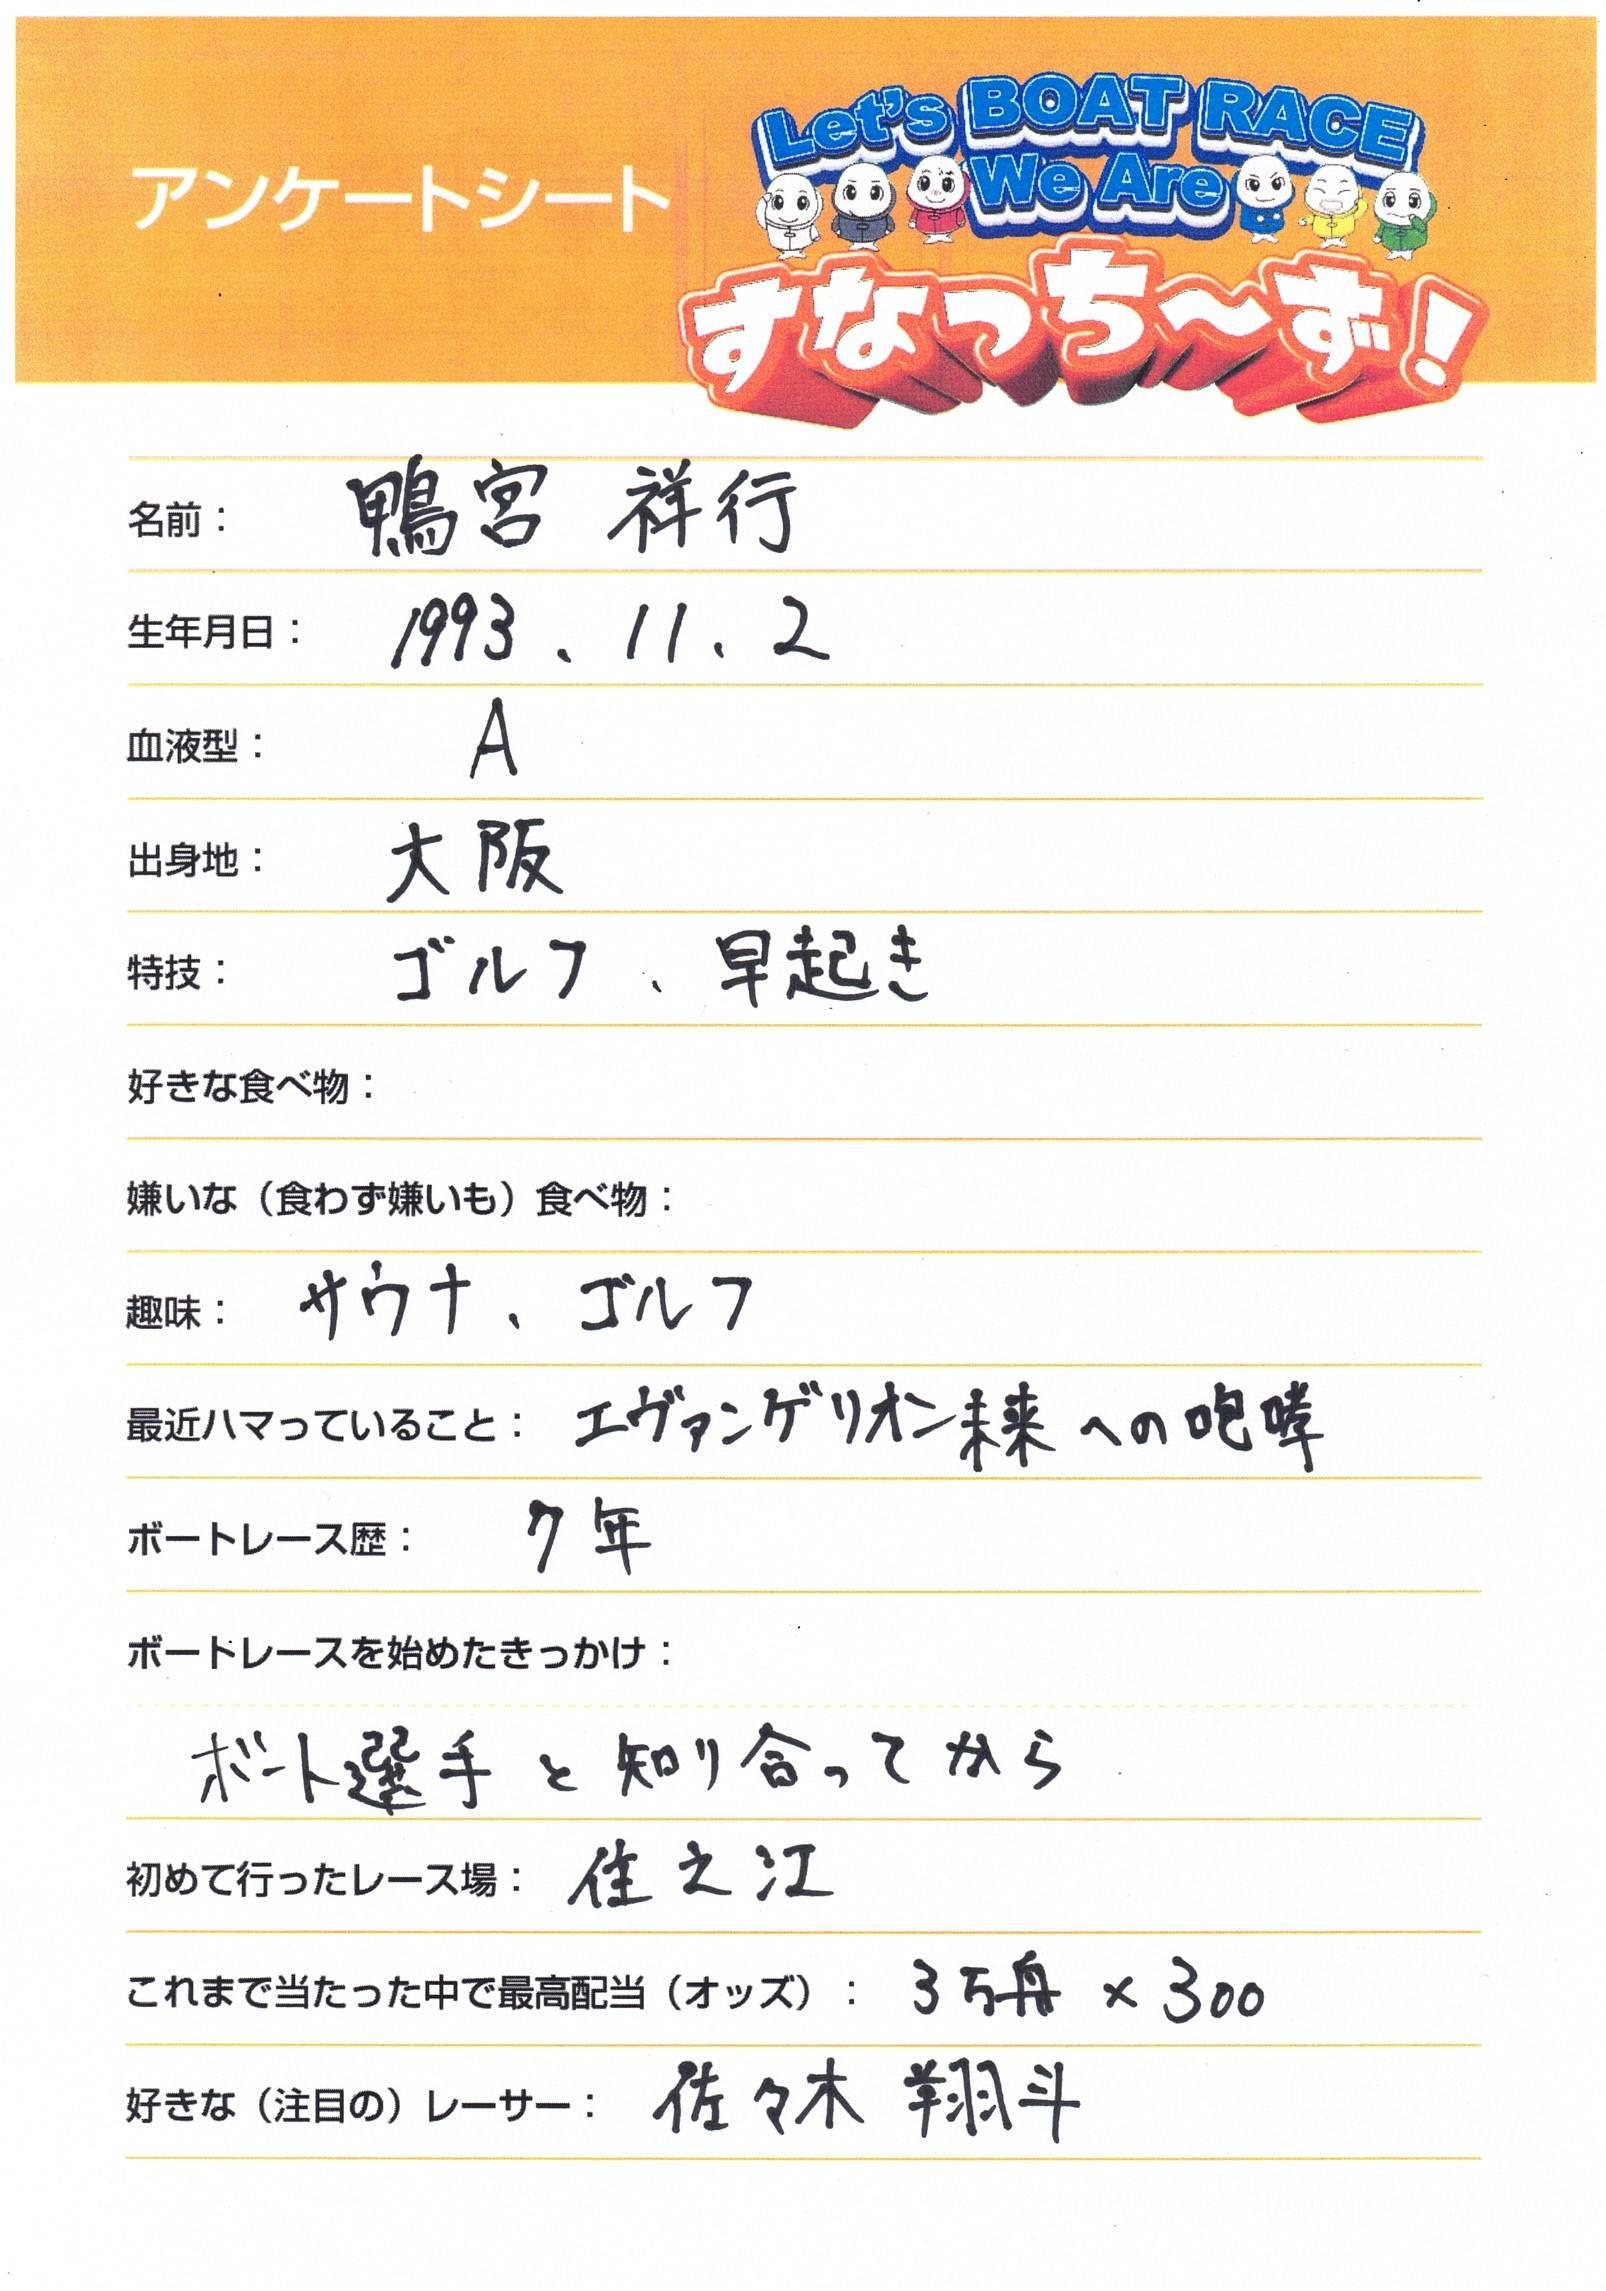 アンケートシート
Let's BOAT RACE
We Are
すなっち〜ず!
名前: 鴨宮 祥行
生年月日: 1993、11、2
血液型: A
出身地: 大阪
特技: ゴルフ、早起き
好きな食べ物:
嫌いな(食わず嫌いも)食べ物:
趣味: サウナ、ゴルフ
最近ハマっていること: エヴァンゲリオン未来への咆哮
ボートレース歴: 7年
ボートレースを始めたきっかけ:
ボート選手と知り合ってから
初めて行ったレース場: 住之江
これまで当たった中で最高配当(オッズ): 3万舟×300
好きな(注目の)レーサー: 佐々木 翔斗